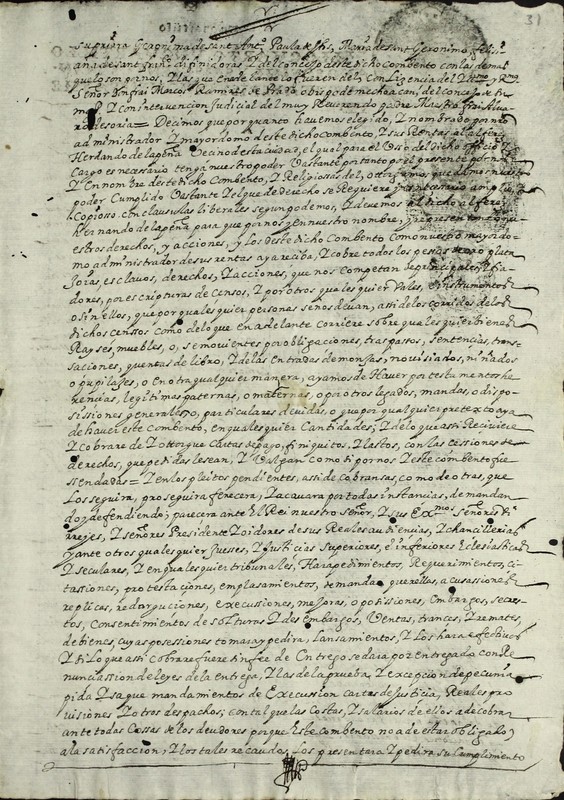 31
supriora Geronima de sant Antº, Paula de Jhs, Maria de sant Geronimo, felisi
ana de sant definidoras, y del consejo deste dicho combento con las demas
que lo son por nos, y las que en adelante lo fueren del, Con licencia del Yltmo y Rmo
Señor Don frai Marcos Ramires de Prado obispo de mechoacan, del consejo de su
magd, y Con intervencion Judicial del muy Reverendo padre Maestro frai Alva
ro de soria = Decimos que por quanto havemos elegido, y nombrado por nro
administrador y mayordomo deste dicho Combento, y sus Rentas al alferes
Hernando de la peña Vecino desta ciudad, el qual para el Usso del dicho officio y
Cargo es necesario tenga nuestro poder Vastante por tanto por el presente por nos
y en nombre deste dicho Combento, y Religiossas del, otorgamos que damos nuestro
poder Cumplido Vastante y el que de derecho se Requiere y es necesario amplio, y
Copiosso con clausulas liberales segun podemos, y devemos al dicho alferes
Hernando de la peña para que por nos y en nuestro nombre, y representando
estros derechos, y acciones, y los deste dicho Combento Como nuestro mayordo
mo administrador de sus rentas aya reciba, y Cobre todos los pesos de oro plata
Joias, esclavos, derechos, y acciones, que nos competan de principales, y fia
dores, por escripturas de Censos, y por otros quales quier Vales, e instrumentos
o sin ellos, que por quales quier personas se nos devan, assi de los corridos de los
dichos censsos Como de lo que en adelante corriere sobre quales quier bienes
Rayses, muebles, o, semovientes por obligaciones, traspassos, sentencias, tran
saciones, quentas de libro, y de las entradas de monjas, novisiados, niñados
o pupilajes, o en otra qualquier manera, ayamos de Haver por testamentos he
rencias, legitimas paternas, o maternas, o por otros legados, mandas, o dispo
sissiones generales o, particulares devidas, o que por qualquier pretexto aya
de haver este combento, en quales quier Cantidades; y de lo que assi Reciviere
y Cobrare de y otorgue Cartas de pago, finiquitos, y lastos, con las cessiones de
derechos, que pedidas le sean, y Valgan como si por nos y este combento fue
ssen dadas = y en los pleitos pendientes, assi de cobransas, como de otras, que
Los seguira, proseguira fenecera, y acavara por todas instancias, demandan
do, y defendiendo; parecera ante el Rei nuestro señor, y sus Exmos Señores Vi
rreies, y señores Presidente y oidores de sus Reales audiencias, y chancillerias
y ante otros quales quier Juesses, y Justicias Superiores, e inferiores Eclesiasticas
y seculares, y en quales quier tribunales, Hara pedimientos, Requerimientos, ci
tassiones, protestaciones, emplasamientos, demandas querellas, acussaciones
replicas, redarguciones, execussiones, mejoras, oposissiones, Embargos, secres
tos, Consentimientos de solturas y desembargos, Ventas, trances, y remates,
de bienes, cuyas possessiones tomara y pedira, Lansamientos, y Los hara efectivos
y si Lo que assi cobrare fuere sin fee de Entrego se dara por entregado con Re
nunciassion de leyes de la entrega, y las de la prueba, y excepcion de pecunia
pida y saque mandamientos de Execussion cartas de Justicia, Reales pro
visiones y otros despachos; con tal que las Costas, y salarios de ellos a de cobrar
ante todas Cossas de los deudores porque este combento no a de estar obligado
a la satisfaccion, y los tales recaudos, Los presentara y pedira su cumplimiento